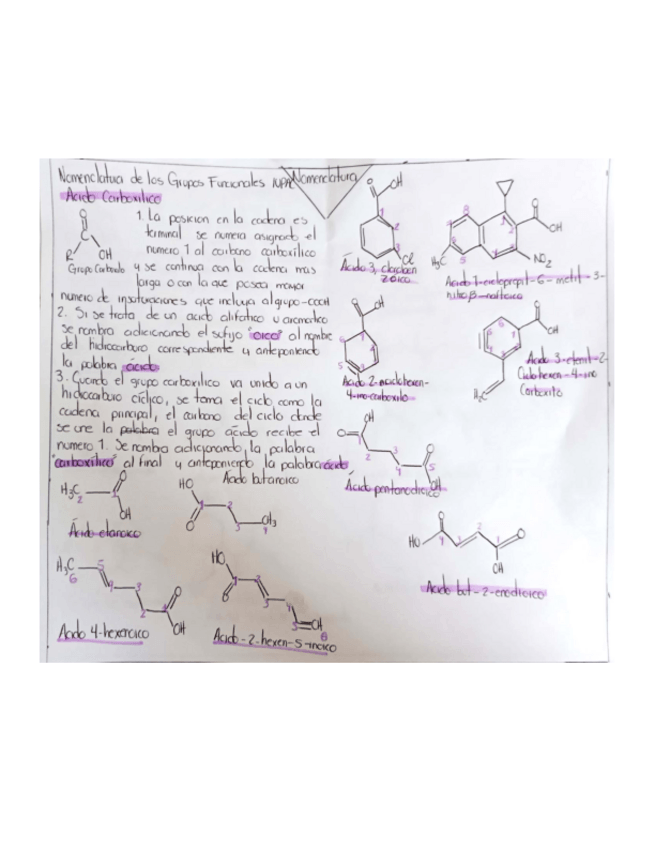 Nomenclatura de los Grupos Funcionales IUPAC
Nomenclatura
Acido Carboxilico
O
R
OH
Grupo Carboxilo
1. La posicion en la cadena es
terminal se numera asignando el
numero 1 al carbono carboxilico
y se continua con la cadena mas
larga o con la que posea mayor
numero de insaturaciones que incluya al grupo-COOH
2. Si se trata de un acido alifatico o aromatico
se nombra adicionando el sufijo "oico" al nombre
del hidrocarburo correspondiente y anteponiendo
la palabra ácido
3. Cuando el grupo carboxilico va unido a un
hidrocarburo cíclico, se toma el ciclo como la
cadena principal, el carbono del ciclo donde
se une la palabra el grupo ácido recibe el
numero 1. Se nombra adicionando la palabra
"carboxilico" al final y anteponiendo la palabra ácido
H₃C
2
O
OH
Ácido etanoico
Ácido butanoico
HO
O
1
2
3
CH₃
4
H₃C
6
5
4
3
2
O
OH
Acido 4-hexenoico
HO
O
1
2
3
4
5
CH
6
Acido-2-hexen-5-inoico
O
OH
1
2
3
Cl
Ácido 3, cloroben
zoico
O
OH
NO₂
H₃C
Acido 1-ciclopropil-6-metil-3-
nitro β-naftoico
O
OH
5
Acido 2-nociclohexen-
O
OH
H₂C
Acido 3-etenil-2-
O
OH
1
2
3
4
5
O
OH
Ácido pentanodioico
HO
O
4
3
2
1
O
OH
Acido but-2-enodioico